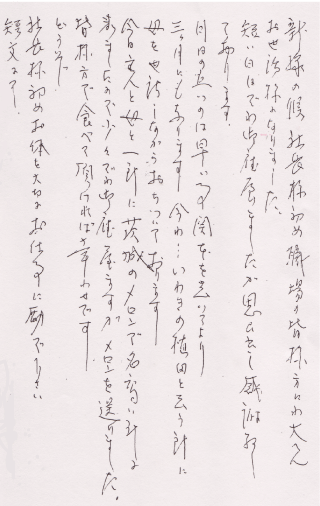 新緑の候 社長様初め職場の皆様方には大変
お世話様になりました。
短い日々でわ御座居ましたが思い出し感謝致し
ております。
月日のたつのは早いもの関本を立ってより
三ヶ月にもなります 今わ…いわきの植田と云う所に
母を世話しながらおちついております
今日主人と母と一諸に茨城のメロンで名高い所に
来ましたので少々でわ御座居ますがメロンを送りました。
皆様方で食べて頂ければ幸わせです
どうぞ
社長様初めお体を大切にお仕事に励で下さい
短文にて